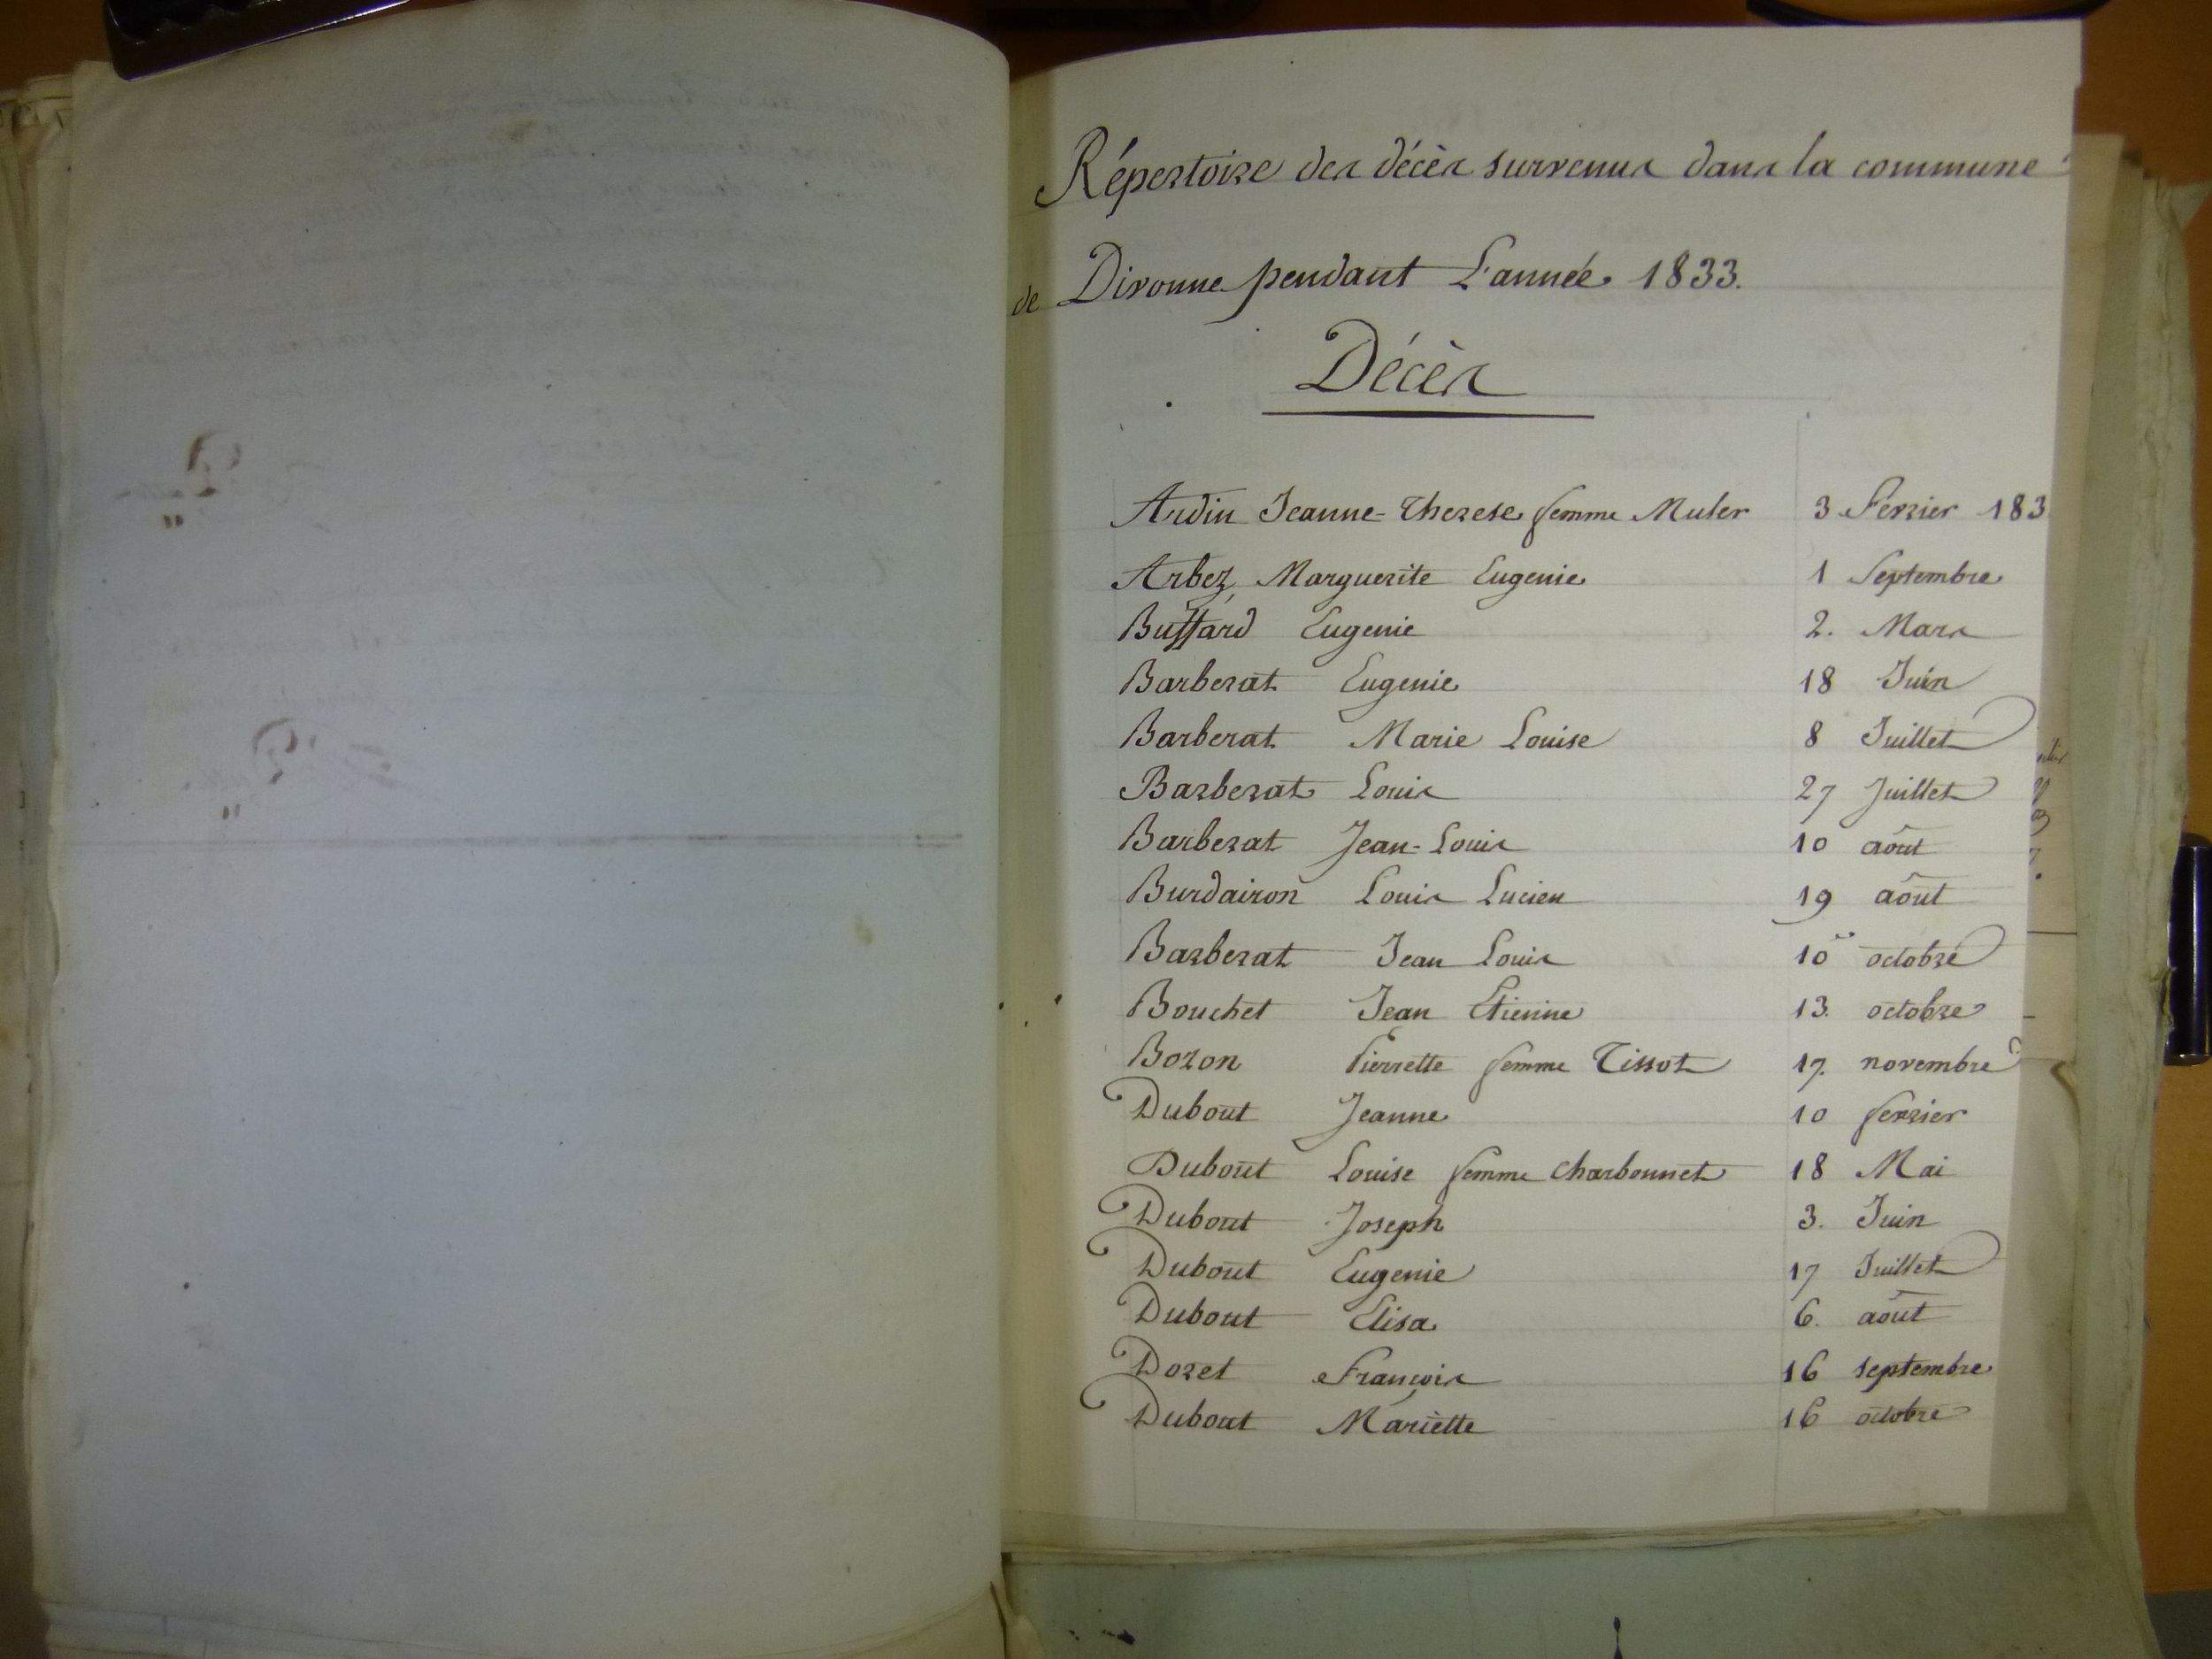 Répertoire des décès survenus dans la commune
de Divonne pendant L'année 1833.
Décès
Ardin Jeanne-Therese femme Muler 3 Fevrier 183
Arbez Marguerite Eugenie 1 Septembre
Buffard Eugenie 2. Mars
Barberat Eugenie 18 Juin
Barberat Marie Louise 8 Juillet
Barberat Louis 27 Juillet
Barberat Jean-Louis 10 août
Burdairon Louis Lucien 19 août
Barberat Jean Louis 10 octobre
Bouchet Jean Etienne 13. octobre
Bozon Pierrette femme Tissot 17. novembre
Dubout Jeanne 10 fevrier
Dubout Louise femme Charbonnet 18 Mai
Dubout Joseph 3. Juin
Dubout Eugenie 17 Juillet
Dubout Elisa 6. août
Doret François 16 septembre
Dubout Mariette 16 octobre